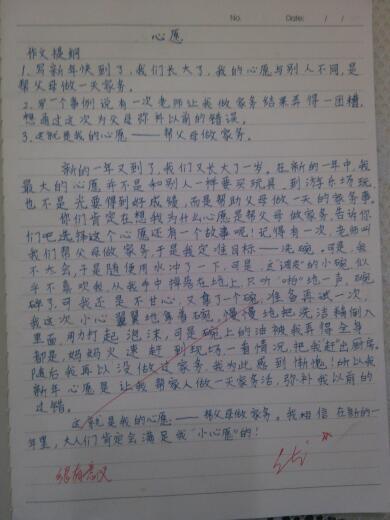 No.
Date: / /
心愿
作文提纲
1.写新年快到了,我们长大了,我的心愿与别人不同,是
帮父母做一天家务。
2.写一个事例说有一次老师让我做家务结果弄得一团糟,
想通过这次为父母弥补以前的错误。
3.这就是我的心愿——帮父母做家务。
新的一年又到了,我们又长大了一岁。在新的一年中,我
最大的心愿并不是和别人一样要买玩具,到游乐场玩,
也不是光要得到好成绩,而是帮助父母做一天的家务事。
你们肯定在想我为什么心愿是帮父母做家务,告诉你
们吧选择这个心愿还有一个故事呢!记得有一次,老师叫
我们帮父母做家务,于是我定准目标——洗碗。可是,我
不大会,于是随便用水冲了一下,可是,这"调皮"的小碗似
乎不喜欢我,从我手中掉落在地上,只听"啪"地一声,碗
碎了,可我还是不甘心,又拿了个碗,准备再试一次,
我这次小心翼翼地拿着碗,慢慢地把洗洁精倒入
里面,用力打起泡沫,可是碗上的油被我弄得全身
都是,妈妈火速赶到现场,一看情况,把我赶出厨房。
随后我再以没做过家务,我为此感到惭愧!所以我
新年心愿是让我帮家人做一天家务活,弥补我以前的
过错。
这就是我的心愿——帮父母做家务。我相信在新的一
年里,大人们肯定会满足我"小心愿"的!
很有意义